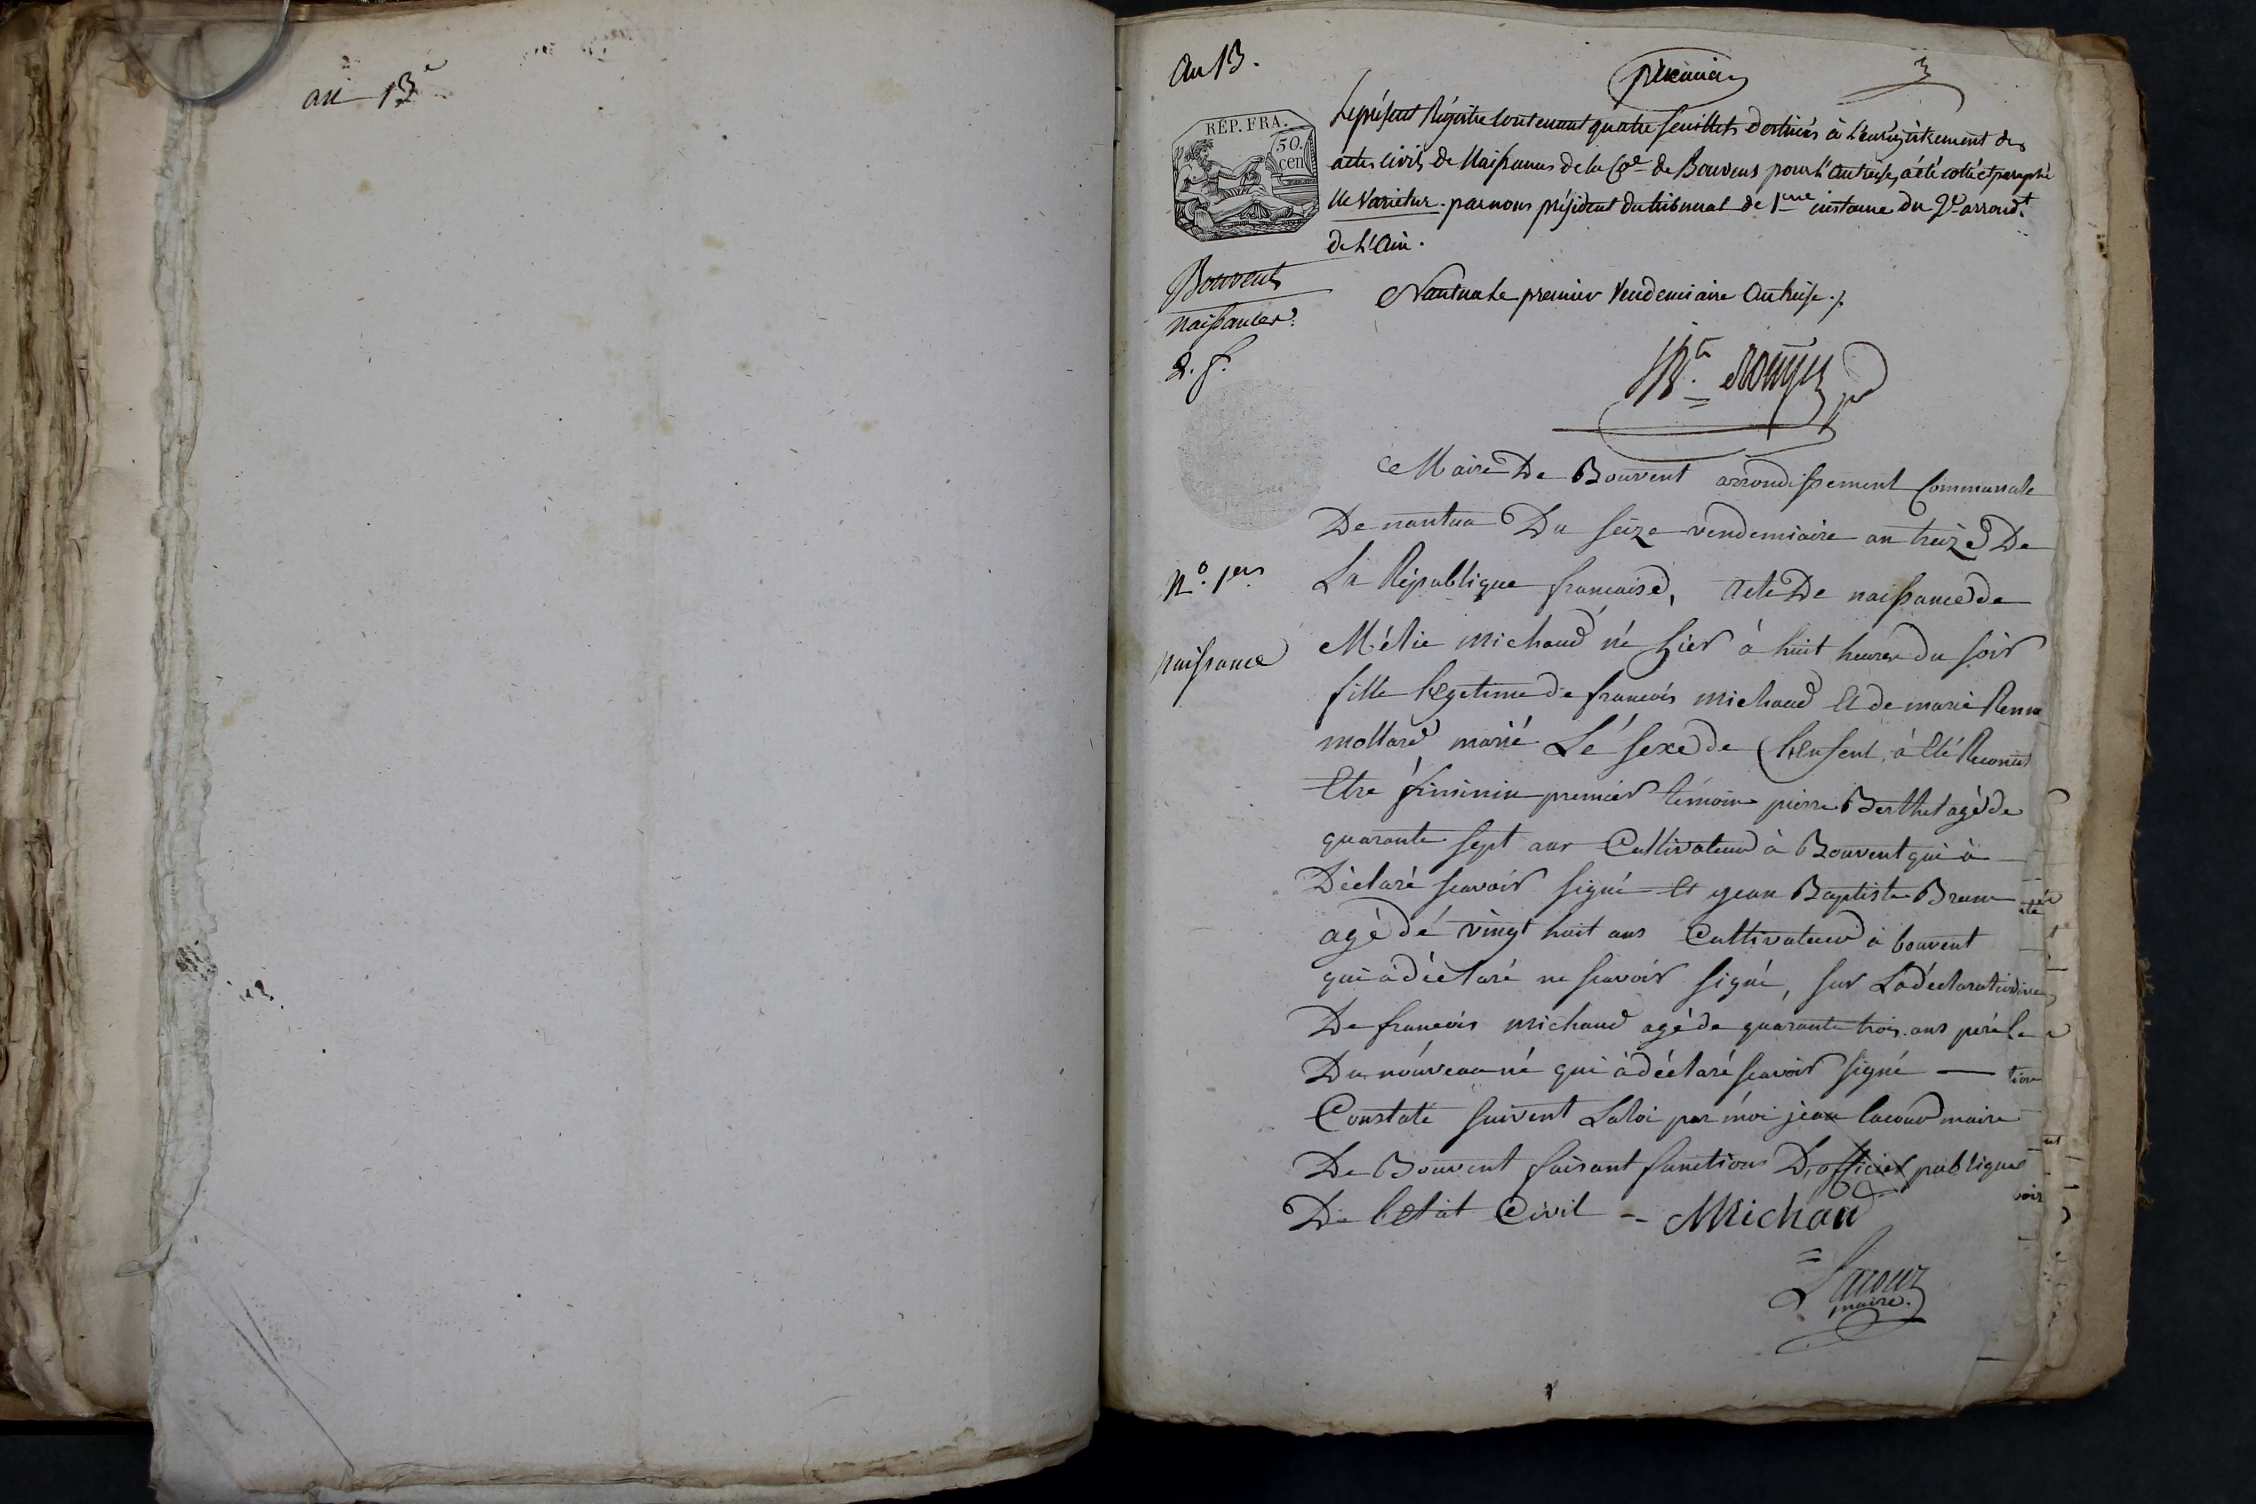 an 13e
an 13.
premier
REP. FRA.
50.
cen
Le présent Régistre contenant quatre feuillets destinés à L'enrégistrement des
actes civils de Naissances de la Cne de Bouvens pour L'an treise, a été cotté et paraphé
Ne Varietur. par nous président du tribunal de 1ere instance du 2e arrondt
de L'Ain.
Bouvent
naissances.
2. f.
Nantua Le premier Vendemiaire an treise ./.
Maire De Bouvent arrondissement Communale
De nantua Du seize vendemiaire an treize De
La République francaise, acte De naissance de
No. 1er
Mélie michaud né hier à huit heures du soir
naissance
fille legetime de francois michaud et de marie
mollard marié Lé sexe de L'enfent, à eté Reconnu
Etre féminin premier témoin pierre Berthet agé de
quarante sept ans Cultivateur à Bouvent qui à
Déclaré scavoir signé et jean Baptiste Brun
agé dé vingt huit ans Cultivateur à bouvent
qui à déclaré ne scavoir signé, sur La déclaration
De francois michaud agé de quarante trois ans pére
Du nouveau né qui à déclaré scavoir signé —
Constaté suivent La loi par moi jean lacour maire
De Bouvent faisant fonctions D'officier publique
De l'etat Civil - Michau
Lacour
maire.